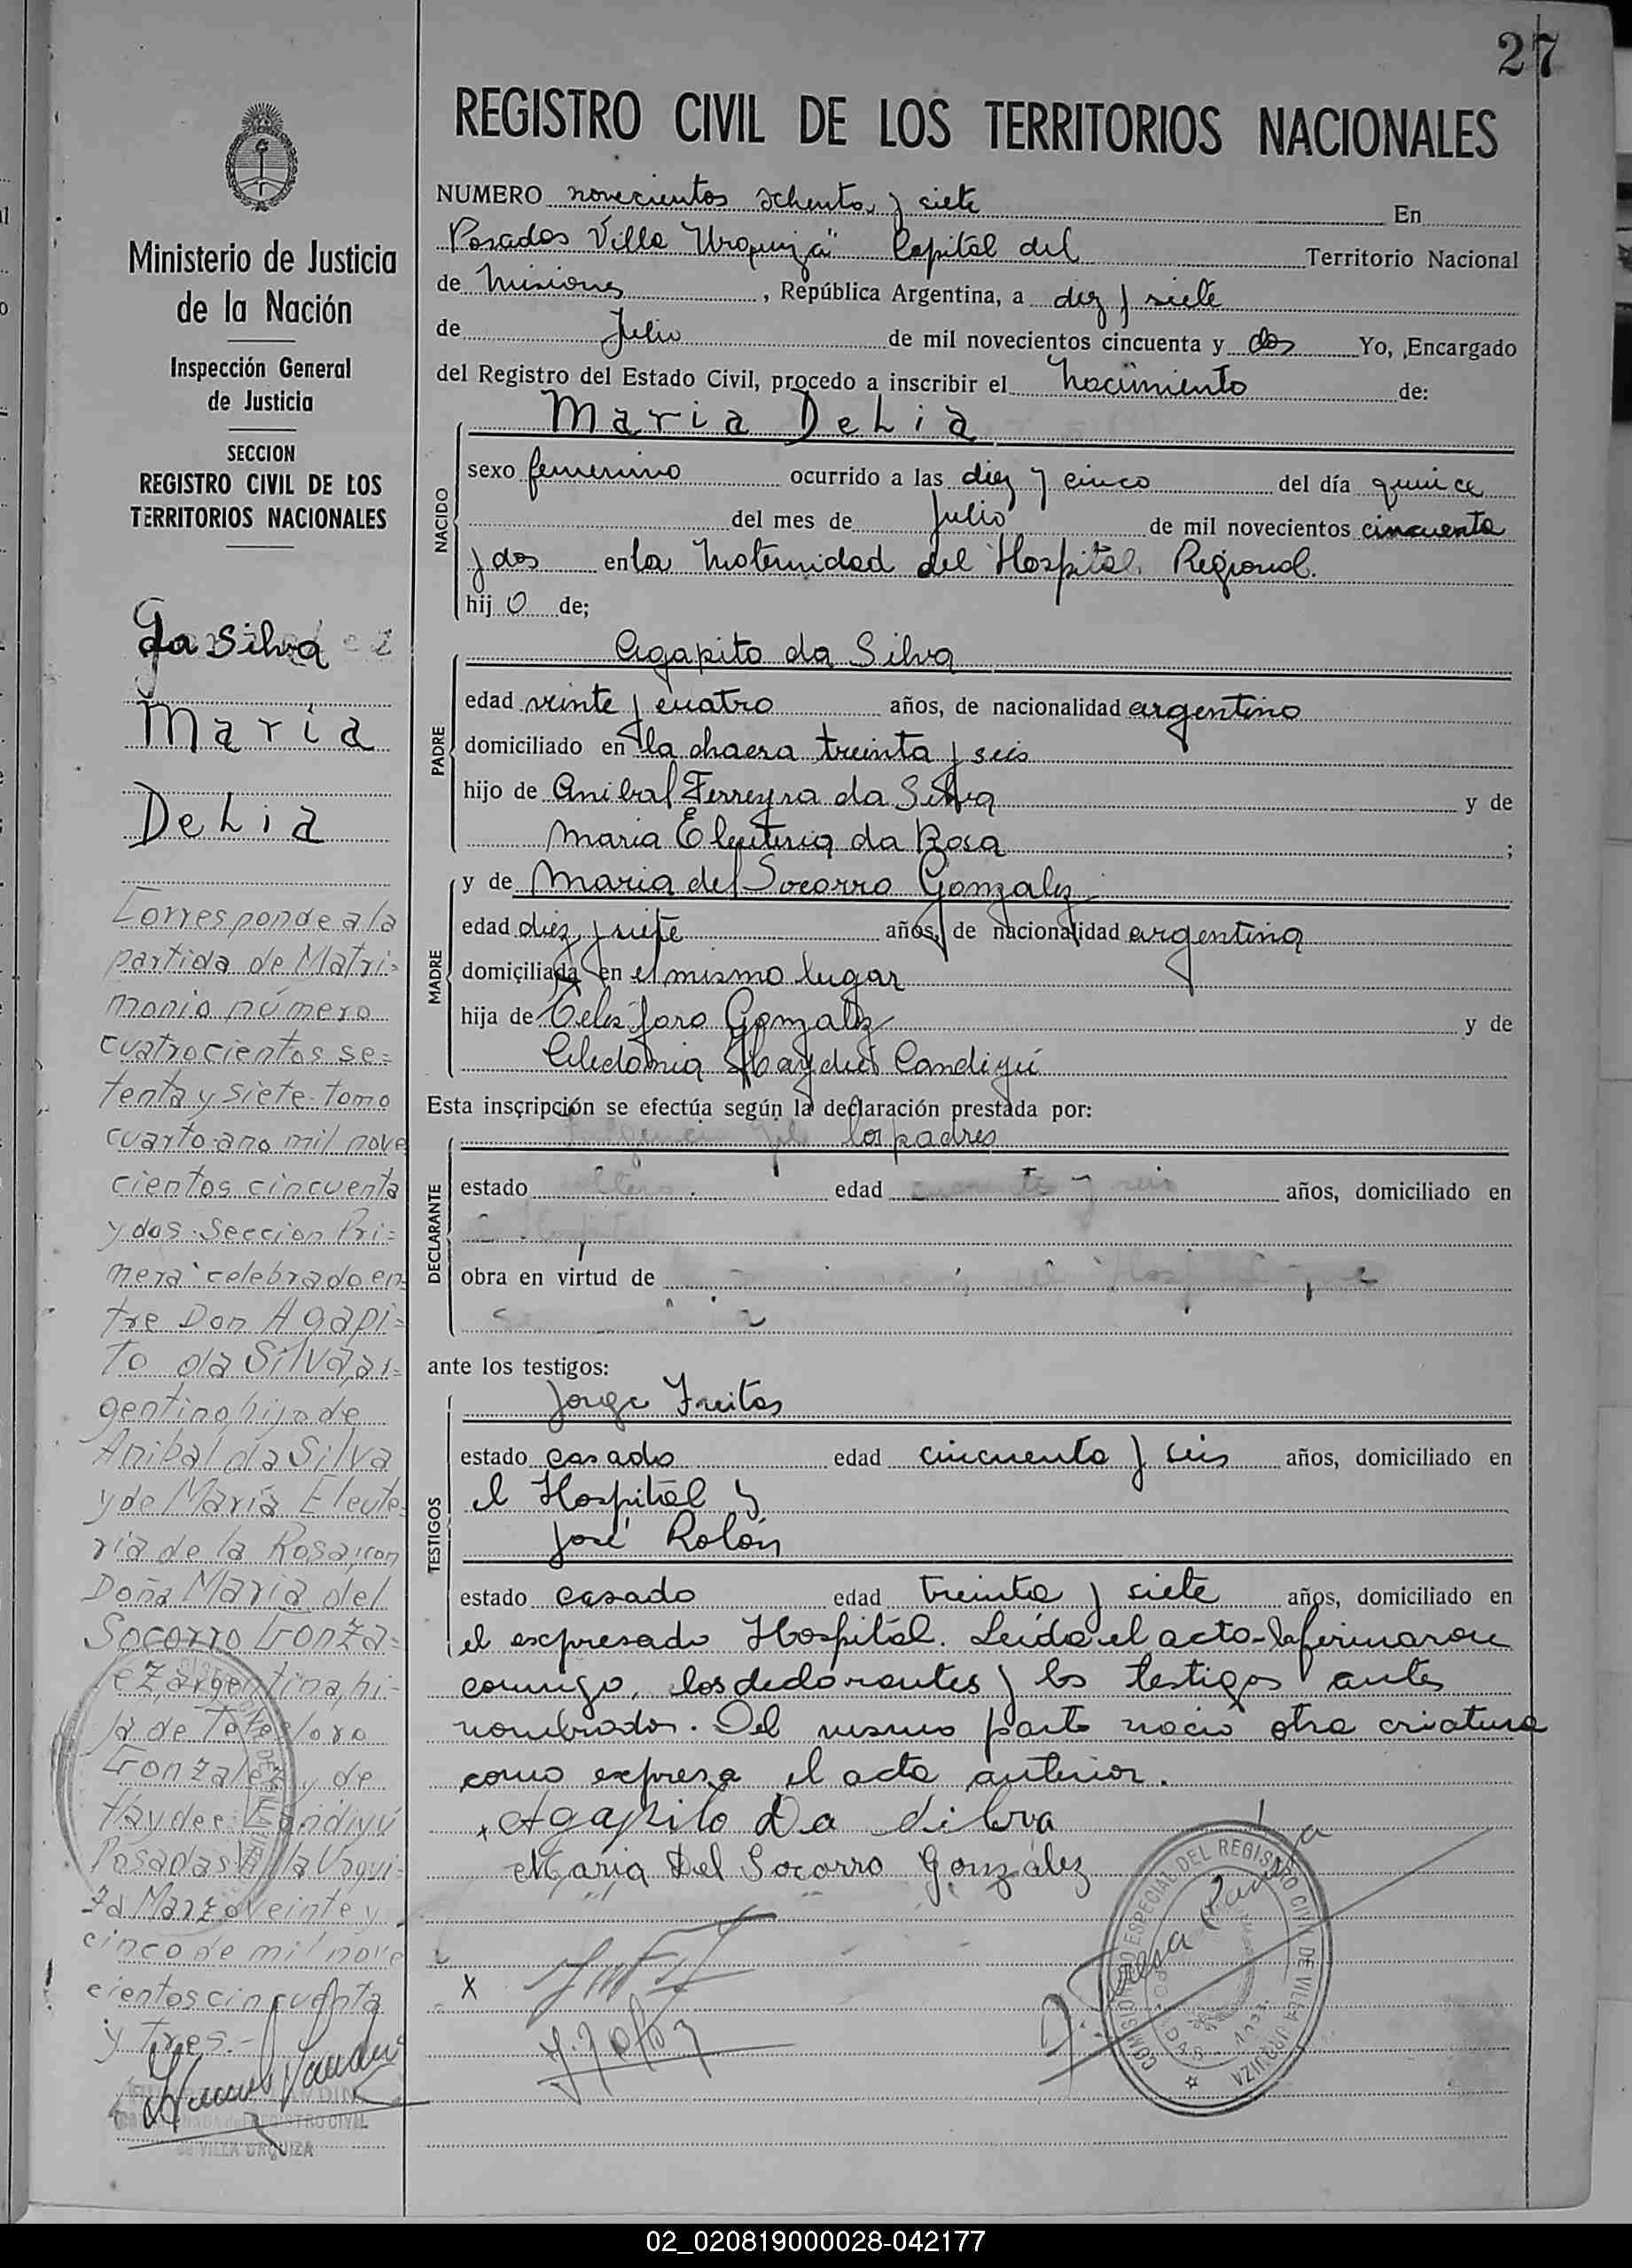 27
REGISTRO CIVIL DE LOS TERRITORIOS NACIONALES
Ministerio de Justicia
de la Nación
Inspección General
de Justicia
SECCION
REGISTRO CIVIL DE LOS
TERRITORIOS NACIONALES
da Silva
Maria
Delia
Corresponde a la
partida de Matri=
monio número
cuatrocientos se=
tenta y siete-tomo
cuarto-ano mil nove
cientos cincuenta
y dos-Seccion Pri=
mera celebrado en
tre Don Agapi=
to da Silva, ar=
gentino, hijo de
Anibal da Silva
y de Maria Eleute
ria de la Rosa, con
Doña Maria del
Socorro Gonza=
ez, argentina, hi-
ja de Telesforo
Gonzalez y de
Haydee Candiyú
Posadas Villa Urqui-
za Marzo veinte y
cinco de mil nove
cientos cincuenta
y tres.-
REGISTRO CIVIL
de VILLA URQUIZA
NUMERO novecientos ochenta y siete En
Posadas Villa Urquiza" Capital del Territorio Nacional
de Misiones, República Argentina, a diez y siete
de Julio de mil novecientos cincuenta y dos Yo, Encargado
del Registro del Estado Civil, procedo a inscribir el Nacimiento de:
NACIDO
Maria Delia
sexo femenino ocurrido a las diez y cinco del día quince
del mes de Julio de mil novecientos cincuenta
y dos en la Maternidad del Hospital Regional.
hij o de;
PADRE
Agapito da Silva
edad veinte y cuatro años, de nacionalidad argentino
domiciliado en la chacra treinta y seis
hijo de Anibal Ferreyra da Silva y de
Maria Eleuteria da Rosa ;
MADRE
y de Maria del Socorro Gonzalez
edad diez y siete años, de nacionalidad argentina
domiciliada en el mismo lugar
hija de Telésforo Gonzalez y de
Celedonia Haydeé Candiyú
Esta inscripción se efectúa según la declaración prestada por:
DECLARANTE
los padres
estado edad años, domiciliado en
obra en virtud de
ante los testigos:
TESTIGOS
Jorge Freitas
estado casado edad cincuenta y seis años, domiciliado en
el Hospital y
José Rolón
estado casado edad treinta y siete años, domiciliado en
el expresado Hospital. Leída el acta-la firmaron
conmigo, los declarantes y los testigos antes
nombrados. Del mismo parto nació otra criatura
como expresa el acta anterior.
Agapito Da Silva
Maria Del Socorro González
X
COMISIONADO ESPECIAL DEL REGISTRO CIVIL DE VILLA URQUIZA
02_020819000028-042177